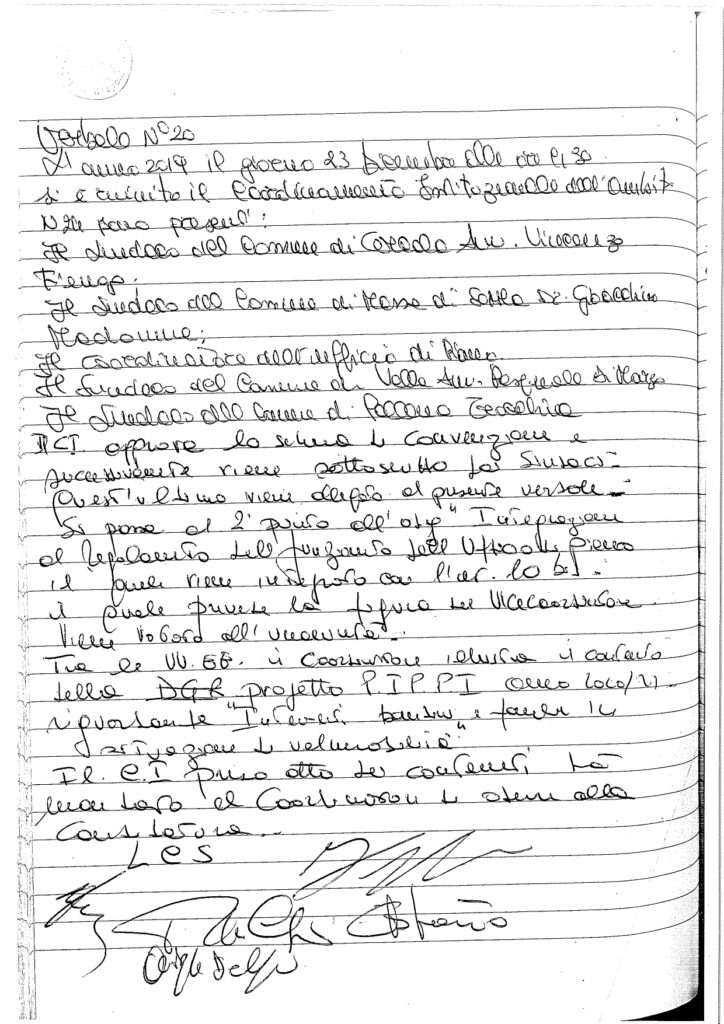 Verbale N° 20
L'anno 2019 il giorno 23 Dicembre alle ore
si è riunito il Coordinamento Istituzionale dell'Ambito
sono presenti:
Il Sindaco del Comune di Casola Avv. Vincenzo
Il Sindaco del Comune di Massa di Somma Dr. Gioacchino
Madonna;
Il Coordinatore dell'ufficio di Piano
Il Sindaco del Comune di Volla Avv. Pasquale Di Marzo
Il Sindaco del Comune di Pollena Trocchia
Il C.I. approva lo schema di convenzione e
successivamente viene sottoscritto dai Sindaci.
Quest'ultimo viene allegato al presente verbale.
Si passa al 2° punto all'odg "Integrazione
al Regolamento dell'funzionamento dell'Ufficio di Piano
il quale viene integrato con l'art. 10 bis.
il quale prevede la figura del Vicecoordinatore
Viene votato all'unanimità.
Tra le VV.EE. il Coordinatore illustra il contenuto
della DGR progetto P.I.P.P.I anno 2020/21
riguardante "Interventi bambini e famiglie in
situazione di vulnerabilità"
Il C.I preso atto dei contenuti dà
mandato al Coordinatore di aderire alla
Candidatura.
L C S